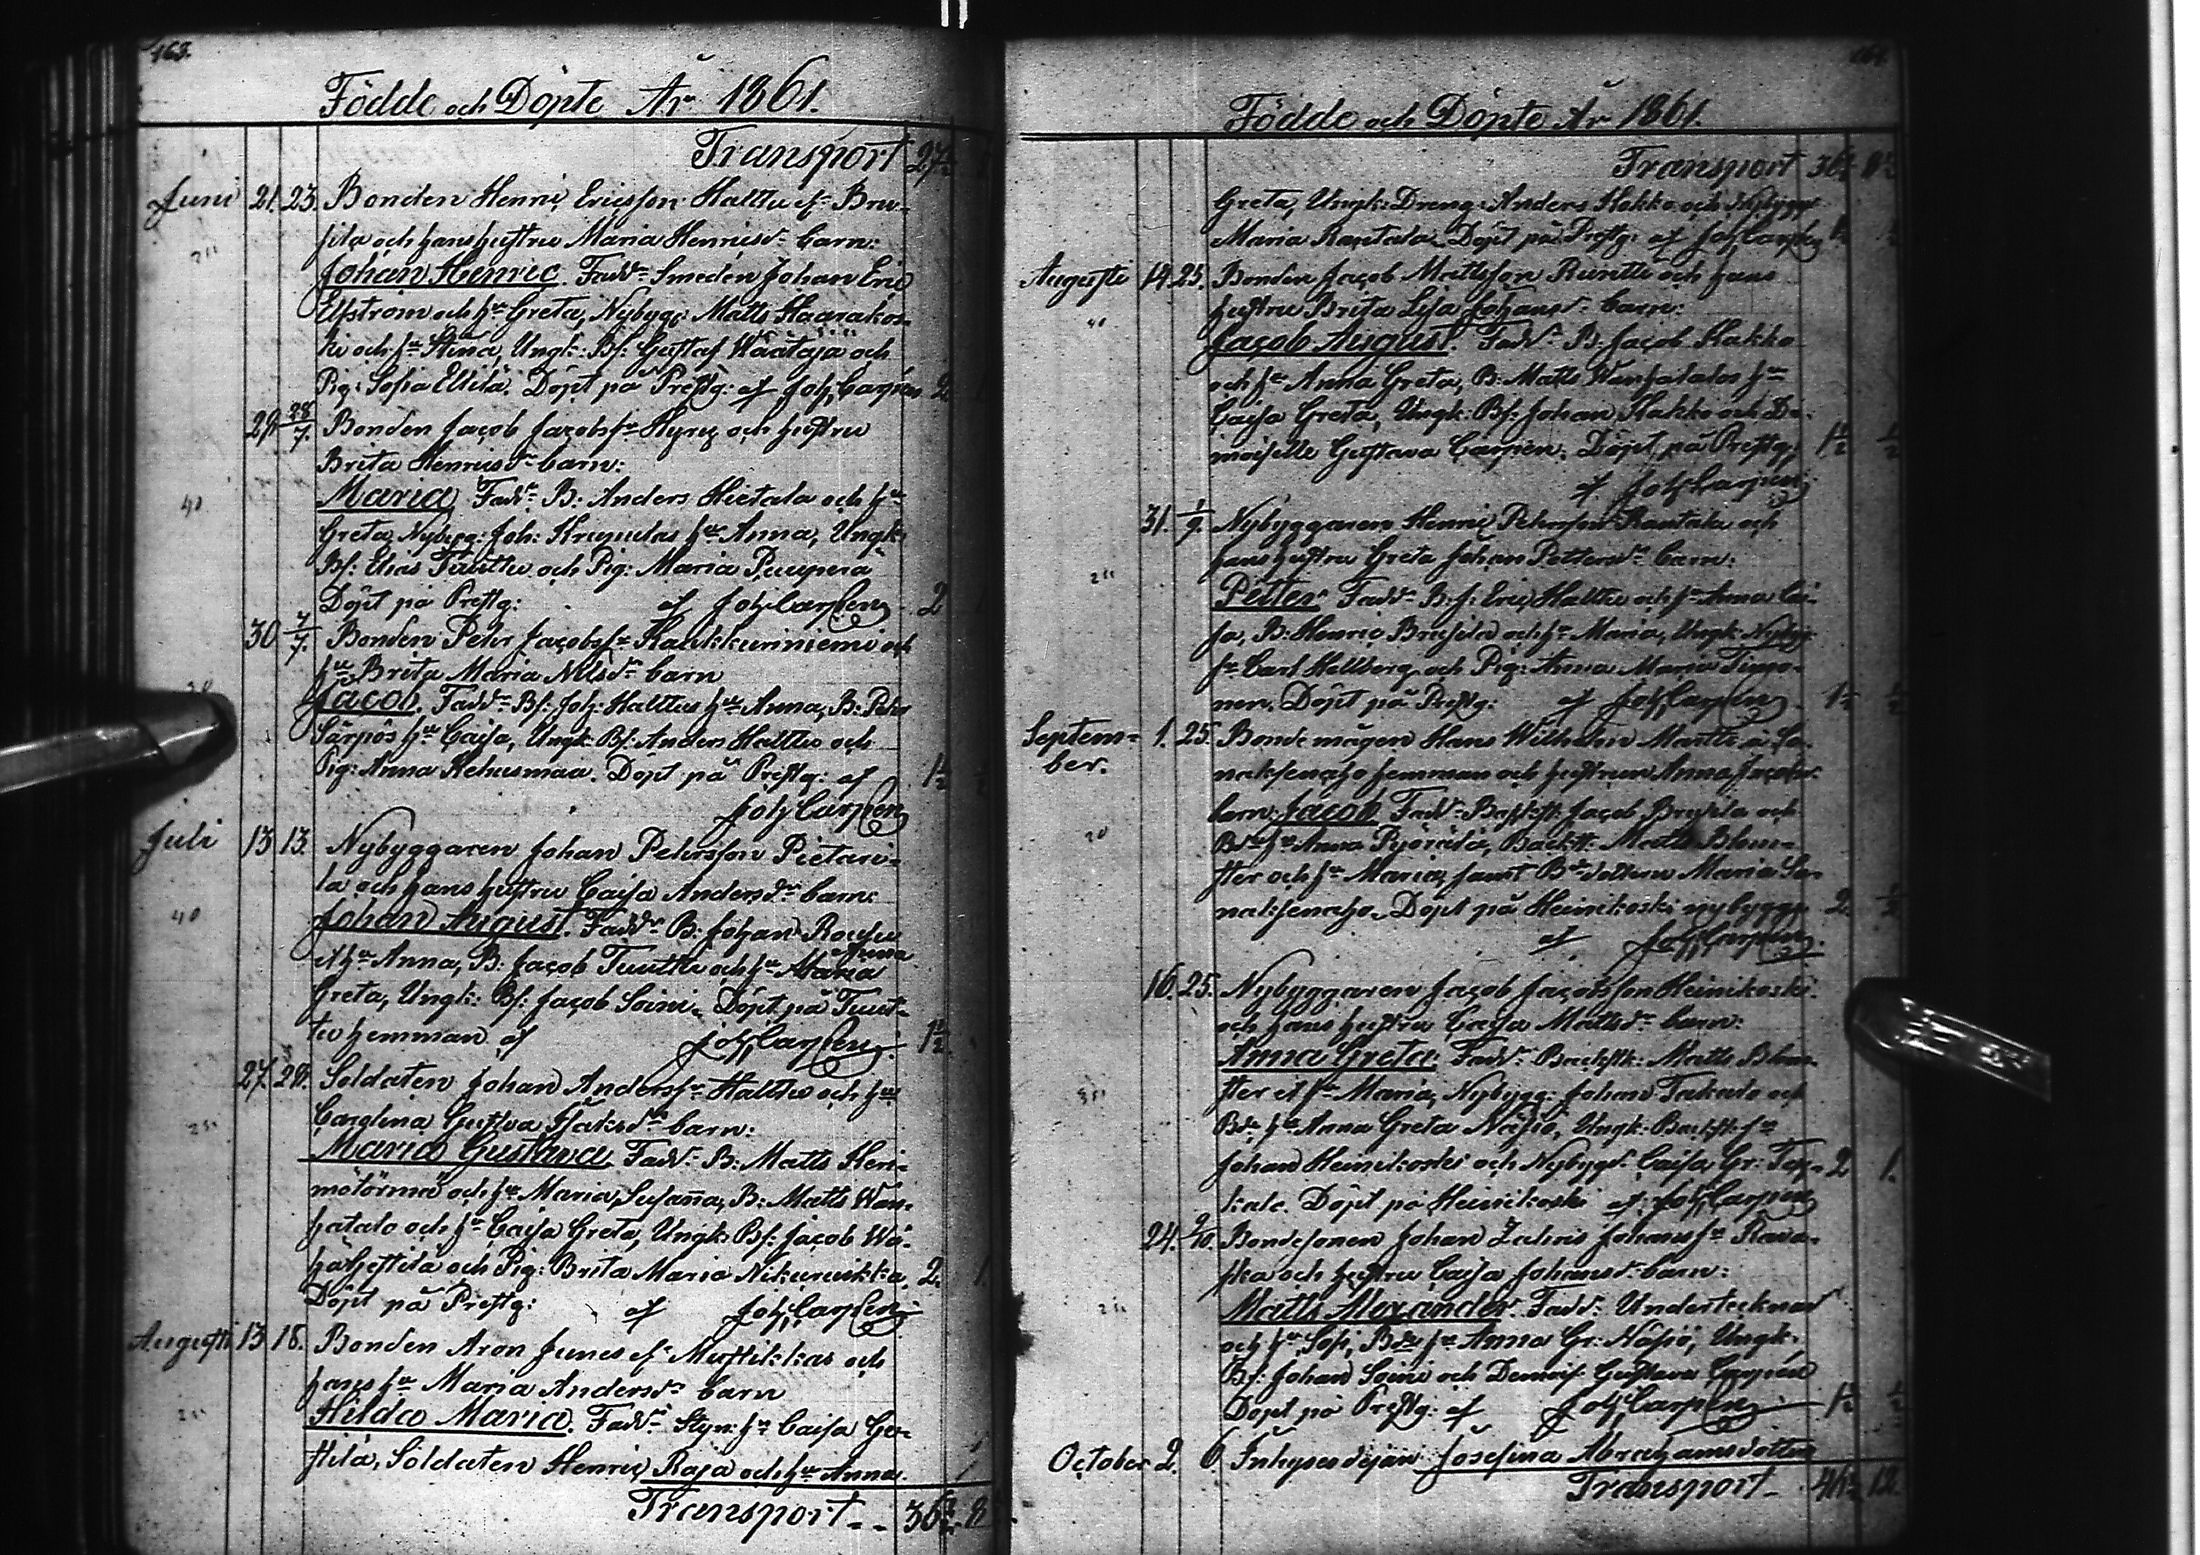 163.
Födde och Döpte År 1861.
Transport 27½
Juni 21. 23. Bonden Henric Ericsson Halttu el. Bru-
sila och hans hustru Maria Henricsdr barn:
Johan Henric. Faddr Smeden Johan Eric
Elfström och hu Greta, Nybygg: Matts Haarakos-
ki och hu Stina, Ungk: Bs: Gustaf Wäätäjä och
Pig: Sofia Ellilä. Döpt på Prestg: af Joh, Carpén 2
29. 28/7. Bonden Jacob Jacobss Kyrö och hustru
Brita Henricsdr barn:
Maria Faddr B: Anders Hietala och hu
Greta, Nybygg: Joh: hu Anna, Ungk:
Bs: Elias Tuuttu och Pig: Maria Puuperä
Döpt på Prestg: af Joh, Carpén 2
30 7/7. Bonden Pehr Jacobss Haukkuriniemi och
hu Brita Maria Nilsdr barn
Jacob. Faddr Bs: Joh: Halttus hu Anna, B: Pehr
Särpös hu Caisa, Ungk: Bs: Anders Halttu och
Pig: Anna Rehusmaa. Döpt på Prestg: af 1½
Joh, Carpén
Juli 13 13. Nybyggaren Johan Pehrsson Pietari-
la och hans hustru Caisa Andersdr barn:
Johan August. Faddr B: Johan
et hu Anna, B: Jacob Tuuttu och hu Maria Anna
Greta, Ungk: Bs: Jacob Soini. Döpt på Tuut-
tu hemman af Joh, Carpén 1½
27. 28. Soldaten Johan Anderss Halttu och hu
Carolina Gustva Isaksdr barn:
Maria Gustava. Faddr B: Matts Heri-
mötörmä och hu Maria Susanna, B: Matts Wan-
hatalo och hu Caisa Greta, Ungk: Bs: Jacob Wä-
häheftilä och Pig: Brita Maria Nikurukka, 2. 1
Döpt på Prestg: af Joh, Carpén
Augusti 13 18. Bonden Aron Junes el. Mustikkas och
hans hu Maria Andersdr barn
Hilda Maria. Faddr hu Caisa Ger-
ttilä, Soldaten Henric Raja och hu Anna
Transport - - 36½ 8
Födde och Döpte År 1861.
Transport 36½ 8½
Greta, Ungk: Dreng: Anders Kokko och Nybygg
Maria Rantala. Döpt på Prestg: af Joh, Carpén 1½ ½
Augusti 14. 25. Bonden Jacob Mattsson Runttu och hans
hustru Brita Lisa Johansdr barn:
Jacob August. Faddr B: Jacob Kakko
och hu Anna Greta, B: Matts Wanhatalos hu
Caisa Greta, Ungk: Bs: Johan Kakko och De-
moiselle Gustava Carpén. Döpt på Prestg: 1½ ½
af Joh, Carpén
31. 1/9. Nybyggaren Henric Pehrsson Rantala och
hans hustru Greta Johan Pettersdr barn:
Petter Faddr B: s: Eric Halttu och hu Anna Cai-
sa, B: Henric Brusila och hu Maria, Ungk: Nybyg
s Carl Hellberg och Pig: Anna Maria Timo-
nen. Döpt på Prestg: af Joh, Carpén 1½ ½
Septem- 1. 25. Bonde mågen Hans Wilhelm Martti å
ber. hemman och hustrun Anna Jacobsdr
barn: Jacob Faddr Jacob Brusila och
hu Anna Pyöriälä, Backst: Matts Blom-
ster och hu Maria, samt dottern Maria
Döpt på Heinikoski nybygge 2. ½
af Joh, Carpén
16. 25. Nybyggaren Jacob Jacobsson Heinikoski
och hans hustru Caisa Mattsdr barn:
Anna Greta. Faddr Backstk: Matts Blom-
ster et hu Maria, Nybygg: Johan Takalo och
hu Anna Greta Näsiö, Ungk: Backst: s
Johan Heinikoski och Nybygd: Caisa Gr: Ta- 2 1.
kalo. Döpt på Heinikoski af: Joh, Carpén
24. Bondesonen Johan Zachris Johanss Rava-
ska och hustru Caisa Johansdr barn:
Matts Alexander. Faddr: Undertecknad
och hu Sofi, hu Anna Gr: Näsiö, Ungk:
Bs: Johan Soini och Demois: Gustava Carpén
Döpt på Prestg: af Joh, Carpén 1½ ½
October 2. 6. Inhysesdejan Josefina Abrahamsdotter
Transport - 46½ 12.